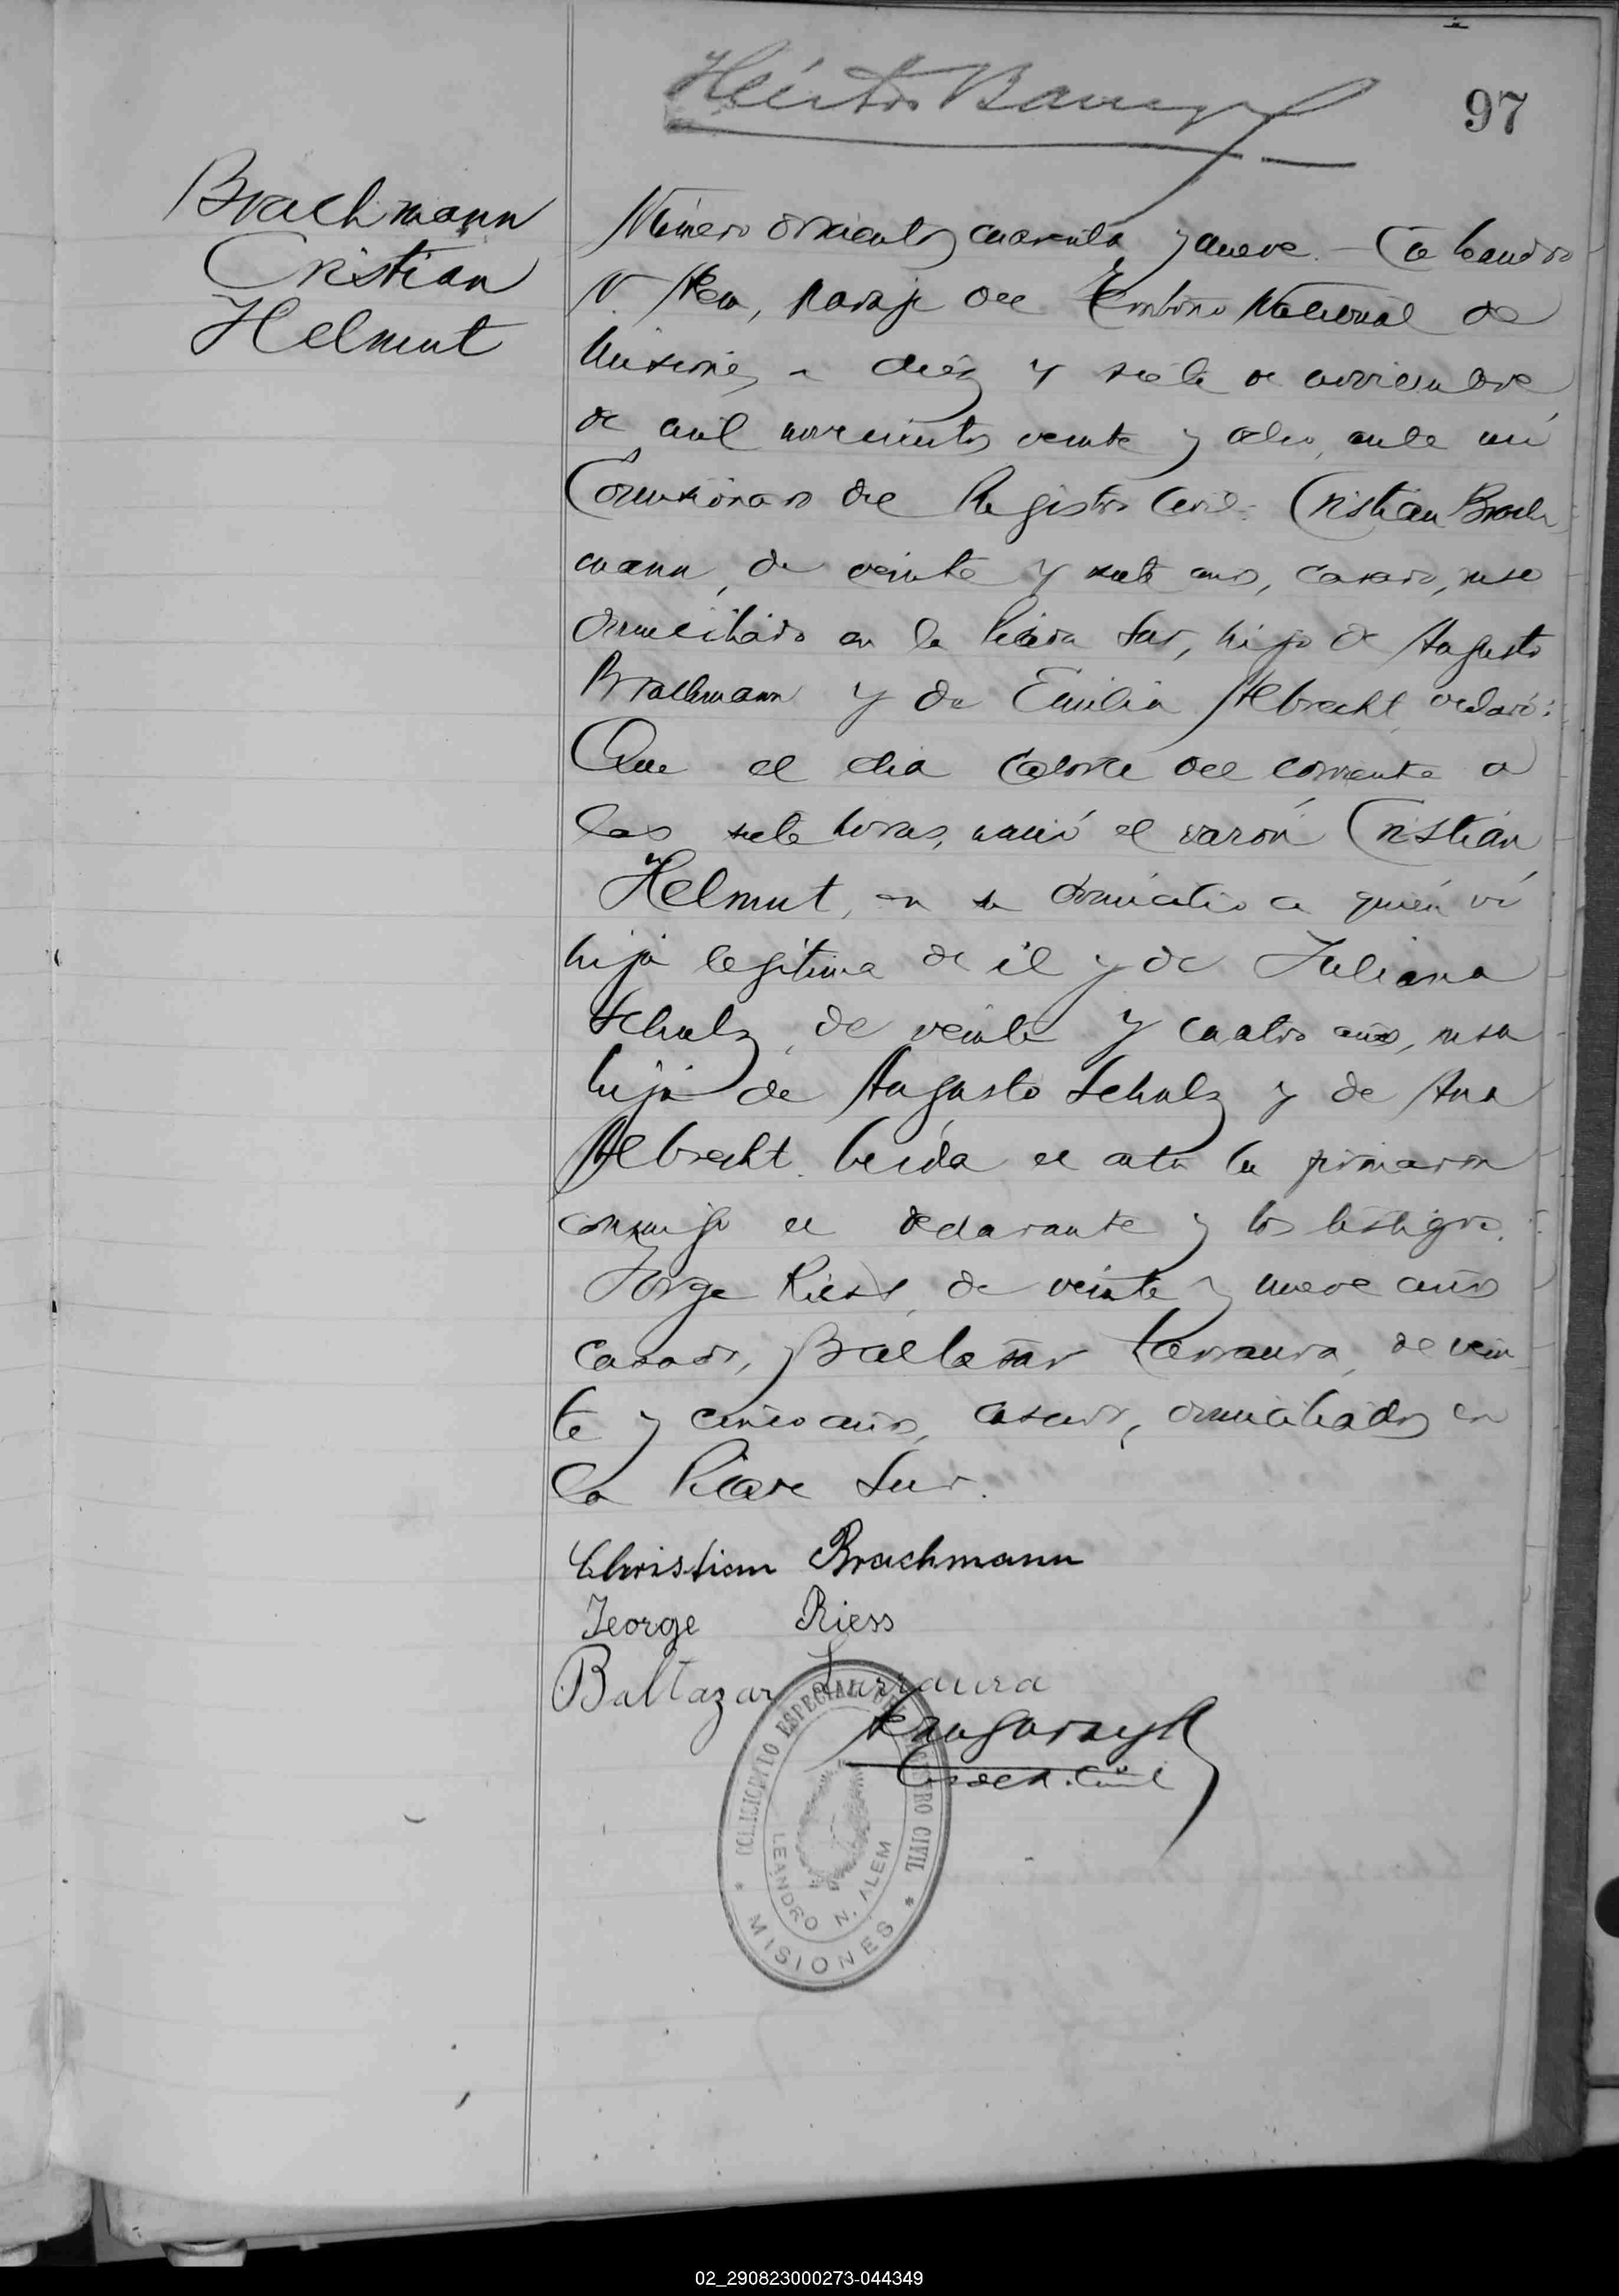 97
Brachmann
Cristian
Helmut
Número doscientos cuarenta y nueve. – En Leandro
N. Alem, paraje del Territorio Nacional de
Misiones, a diez y siete de noviembre
de mil novecientos veinte y ocho, ante mi
Comisionado del Registro Civil: Cristian Brach
mann, de veinte y siete años, casado, ruso
domiciliado en la Picada Sur, hijo de Augusto
Brachmann y de Emilia Albrecht, declaró:
Que el dia catorce del corriente a
las siete horas, nació el varón Cristián
Helmut, en su domicilio a quién ví
hijo legitimo de él y de Juliana
Schulz, de veinte y cuatro años, rusa
hija de Augusto Schulz y de Ana
Albrecht. Leída el acta la firmaron
conmigo el declarante y los testigos.
Jorge Riess, de veinte y nueve años
casado, y Baltasar Larraura, de vein
te y cinco años, casado, domiciliados en
la Picada Sur.
Christian Brachmann
Jeorge Riess
Baltazar Larraura
ESPECIAL DE REGISTRO CIVIL
LEANDRO N. ALEM
* MISIONES *
02_290823000273-044349